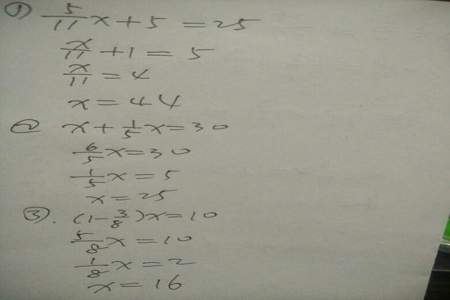 ① 5/11 x + 5 = 25
x/11 + 1 = 5
x/11 = 4
x = 44
② x + 1/5 x = 30
6/5 x = 30
1/5 x = 5
x = 25
③. (1 - 3/8) x = 10
5/8 x = 10
1/8 x = 2
x = 16